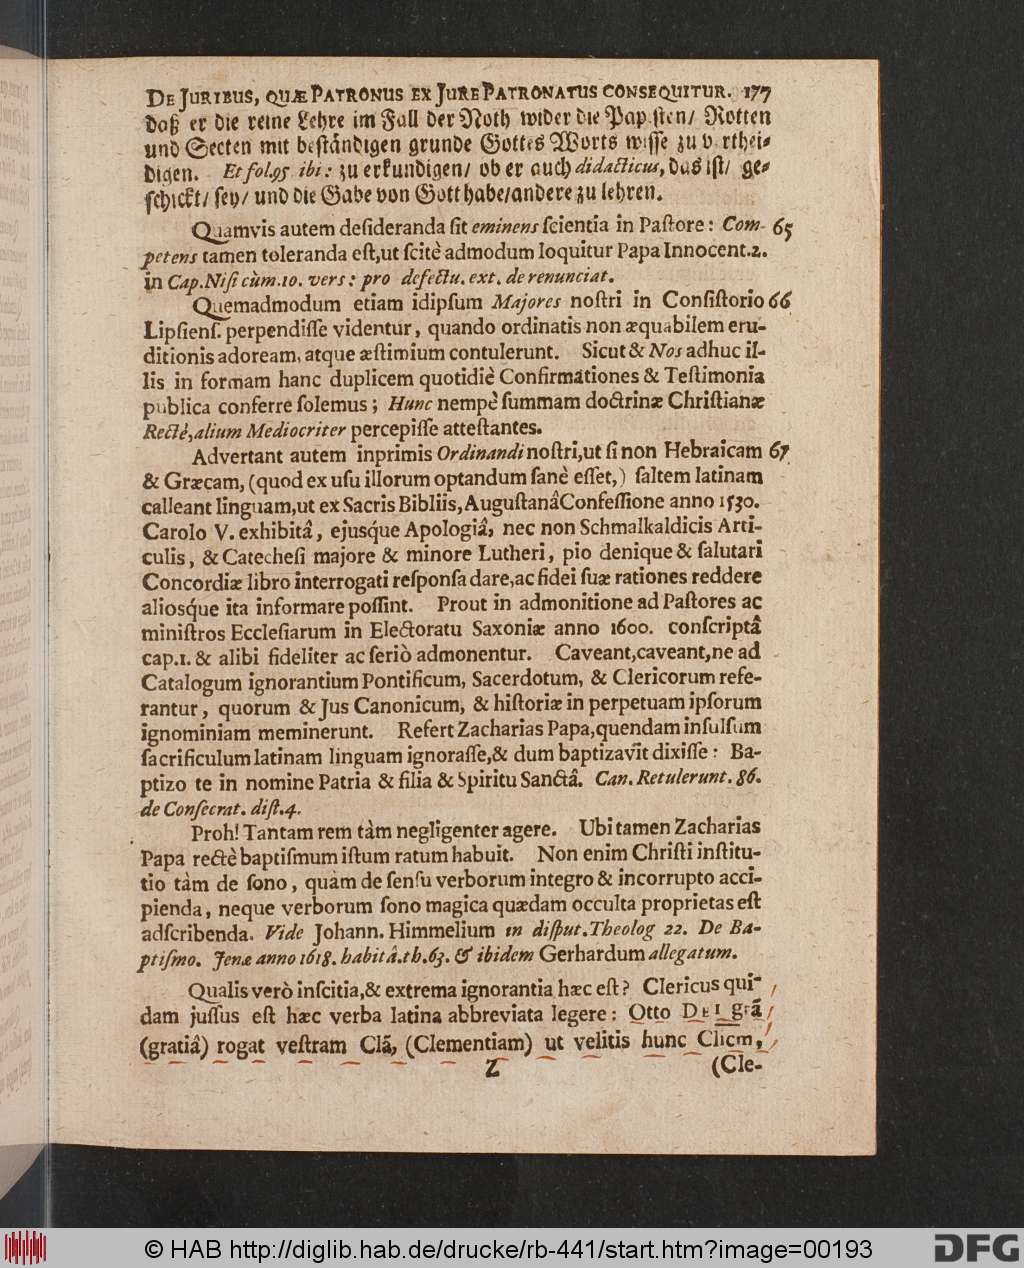 DE JURIBUS, QUÆ PATRONUS EX JURE PATRONATUS CONSEQUITUR. 177
daß er die reine Lehre im Fall der Noth wider die Papisten/ Rotten
und Secten mit beständigen grunde Gottes Worts wisse zu verthei⸗
digen. Et fol.95 ibi: zu erkundigen/ ob er auch didacticus, das ist/ ge⸗
schickt/ sey/ und die Gabe von Gott habe/andere zu lehren.
Quamvis autem deſideranda ſit eminens ſcientia in Paſtore: Com- 65
petens tamen toleranda eſt,ut ſcitè admodum loquitur Papa Innocent.2.
in Cap.Niſi cùm.10. vers: pro defectu. ext. de renunciat.
Quemadmodum etiam idipſum Majores noſtri in Conſiſtorio 66
Lipſienſ. perpendiſſe videntur, quando ordinatis non æquabilem eru-
ditionis adoream, atque æſtimium contulerunt. Sicut & Nos adhuc il-
lis in formam hanc duplicem quotidiè Confirmationes & Teſtimonia
publica conferre ſolemus; Hunc nempè ſummam doctrinæ Chriſtianæ
Rectè,alium Mediocriter percepiſſe atteſtantes.
Advertant autem inprimis Ordinandi noſtri,ut ſi non Hebraicam 67
& Græcam, (quod ex uſu illorum optandum ſanè eſſet,) ſaltem latinam
calleant linguam,ut ex Sacris Bibliis, Auguſtanâ Confeſſione anno 1530.
Carolo V. exhibitâ, ejusq́ue Apologiâ, nec non Schmalkaldicis Arti-
culis, & Catecheſi majore & minore Lutheri, pio denique & ſalutari
Concordiæ libro interrogati reſponſa dare,ac fidei ſuæ rationes reddere
aliosq́ue ita informare poſſint. Prout in admonitione ad Paſtores ac
miniſtros Eccleſiarum in Electoratu Saxoniæ anno 1600. conſcriptâ
cap.1. & alibi fideliter ac ſeriò admonentur. Caveant,caveant,ne ad
Catalogum ignorantium Pontificum, Sacerdotum, & Clericorum refe-
rantur, quorum & Jus Canonicum, & hiſtoriæ in perpetuam ipſorum
ignominiam meminerunt. Refert Zacharias Papa,quendam inſulſum
ſacrificulum latinam linguam ignoraſſe,& dum baptizavit dixiſſe: Ba-
ptizo te in nomine Patria & filia & Spiritu Sanctâ. Can. Retulerunt. 86.
de Conſecrat. diſt.4.
Proh! Tantam rem tàm negligenter agere. Ubi tamen Zacharias
Papa rectè baptiſmum iſtum ratum habuit. Non enim Chriſti inſtitu-
tio tàm de ſono, quàm de ſenſu verborum integro & incorrupto acci-
pienda, neque verborum ſono magica quædam occulta proprietas eſt
adſcribenda. Vide Johann. Himmelium in diſput. Theolog 22. De Ba-
ptiſmo. Jenæ anno 1618. habitâ.th.63. & ibidem Gerhardum allegatum.
Qualis verò inſcitia,& extrema ignorantia hæc eſt? Clericus qui-
dam juſſus eſt hæc verba latina abbreviata legere: Otto DEI grã
(gratiâ) rogat veſtram Clã, (Clementiam) ut velitis hunc Clicm,
Z (Cle-
© HAB http://diglib.hab.de/drucke/rb-441/start.htm?image=00193 DFG